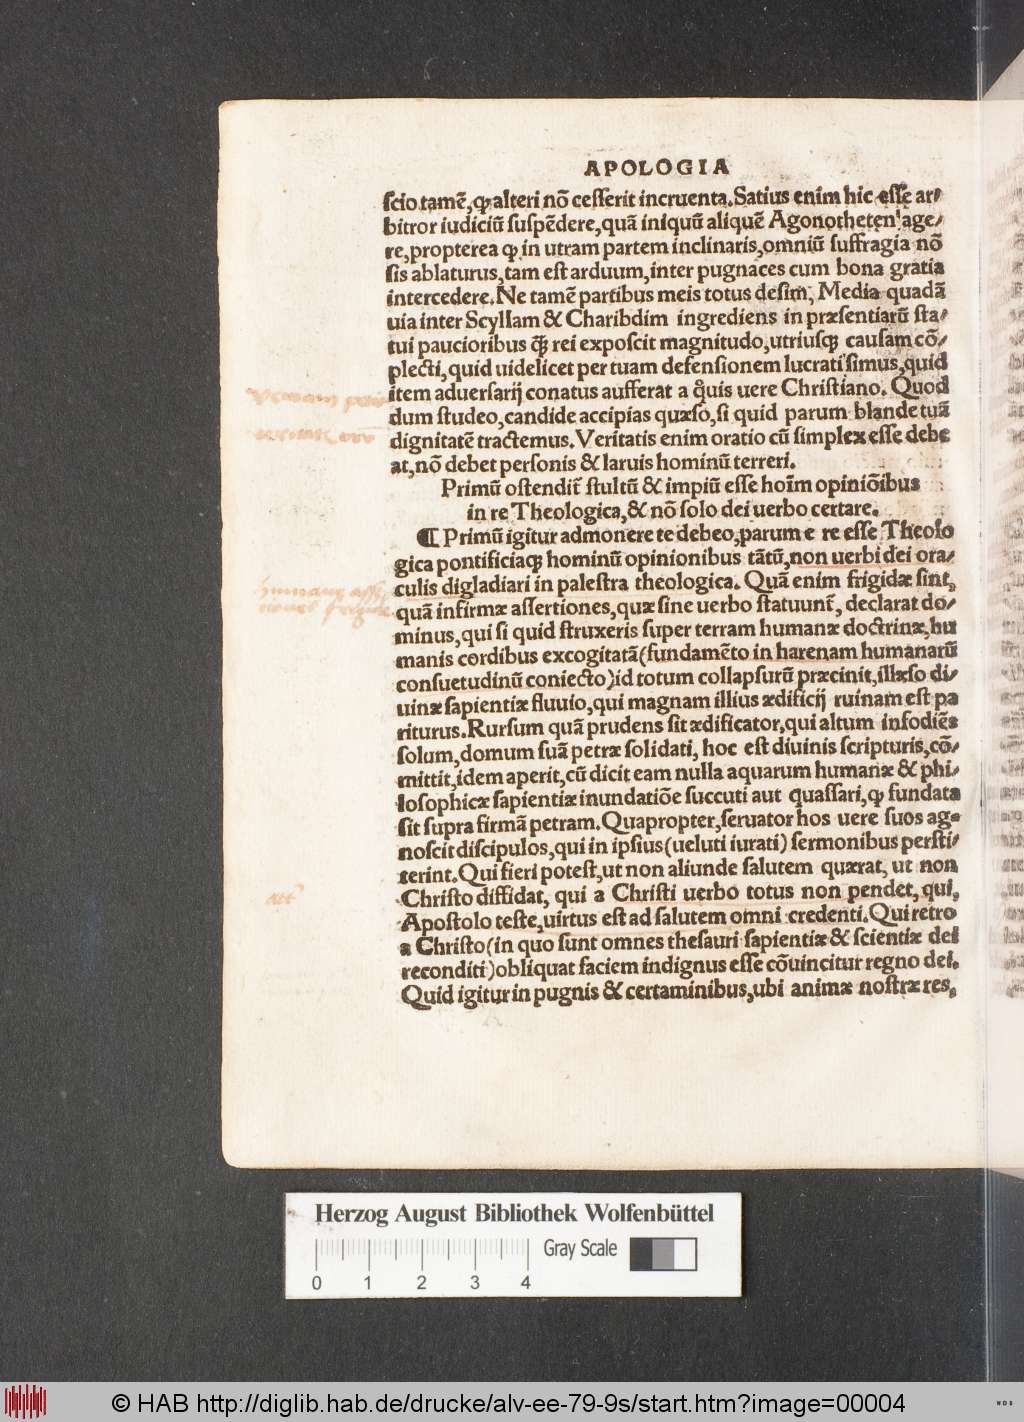 APOLOGIA
scio tamē, ꝙ alteri nō cesserit incruenta. Satius enim hic esse ar⸗
bitror iudiciū suspēdere, quā iniquū aliquē Agonotheten age⸗
re, propterea ꝙ in utram partem inclinaris, omniū suffragia nō
sis ablaturus, tam est arduum, inter pugnaces cum bona gratia
intercedere. Ne tamē partibus meis totus desim, Media quadā
uia inter Scyllam & Charibdim ingrediens in præsentiarū sta⸗
tui paucioribus q̄ꝫ rei exposcit magnitudo, utriusqꝫ causam cō⸗
plecti, quid uidelicet per tuam defensionem lucrati simus, quid
item aduersarij conatus aufferat a q̊uis uere Christiano. Quod
dum studeo, candide accipias quæso, si quid parum blande tuā
dignitatē tractemus. Veritatis enim oratio cū simplex esse debe
at, nō debet personis & laruis hominū terreri.
Primū ostendit̄ stultū & impiū esse hoīm opiniōibus
in re Theologica, & nō solo dei uerbo certare.
¶ Primū igitur admonere te debeo, parum e re esse Theolo
gica pontificiaqꝫ hominū opinionibus tātū, non uerbi dei ora⸗
culis digladiari in palestra theologica. Quā enim frigidæ sint,
quā infirmæ assertiones, quæ sine uerbo statuunt̄, declarat do⸗
minus, qui si quid struxeris super terram humanæ doctrinæ, hu
manis cordibus excogitatā (fundamēto in harenam humanarū
consuetudinū coniecto) id totum collapsurū præcinit, illæso di⸗
uinæ sapientiæ fluuio, qui magnam illius ædificij ruinam est pa
riturus. Rursum quā prudens sit ædificator, qui altum infodiēs
solum, domum suā petræ solidati, hoc est diuinis scripturis, cō⸗
mittit, idem aperit, cū dicit eam nulla aquarum humanæ & phi⸗
losophicæ sapientiæ inundatiōe succuti aut quassari, ꝙ fundata
sit supra firmā petram. Quapropter, seruator hos uere suos ag⸗
noscit discipulos, qui in ipsius (ueluti iurati) sermonibus persti⸗
terint. Qui fieri potest, ut non aliunde salutem quærat, ut non
Christo diffidat, qui a Christi uerbo totus non pendet, qui,
Apostolo teste, uirtus est ad salutem omni credenti. Qui retro
a Christo (in quo sunt omnes thesauri sapientiæ & scientiæ dei
reconditi) obliquat faciem indignus esse cōuincitur regno dei.
Quid igitur in pugnis & certaminibus, ubi animæ nostræ res,
Herzog August Bibliothek Wolfenbüttel
Gray Scale
0 1 2 3 4
© HAB http://diglib.hab.de/drucke/alv-ee-79-9s/start.htm?image=00004